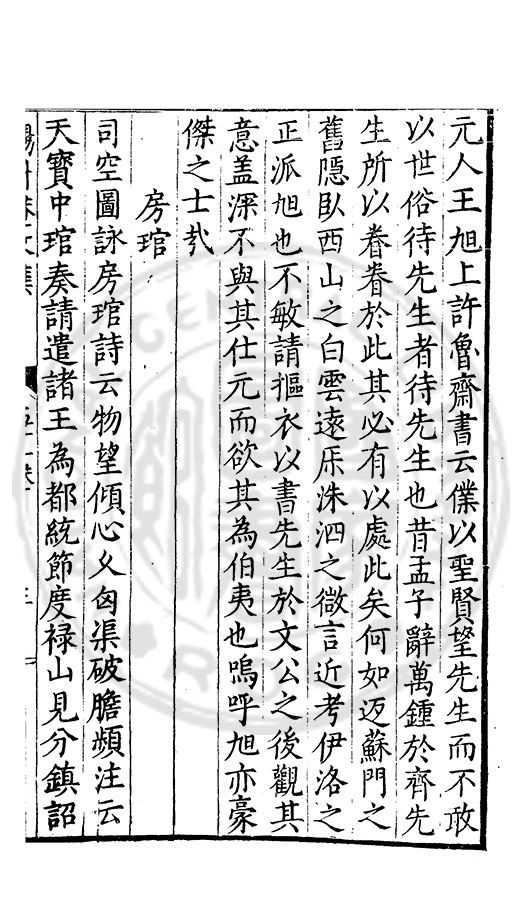 元人王旭上許魯齋書云僕以聖賢望先生而不敢
以世俗待先生者待先生也昔孟子辭萬鍾於齊先
生所以眷眷於此其必有以處此矣何如迈蘇門之
舊隱臥西山之白雲遠泝洙泗之微言近考伊洛之
正派旭也不敏請摳衣以書先生於文公之後觀其
意盖深不與其仕元而欲其為伯夷也嗚呼旭亦豪
傑之士㢤
房琯
司空圖詠房琯詩云物望傾心久匈渠破膽頻注云
天寶中琯奏請遣諸王為都統節度禄山見分鎮詔